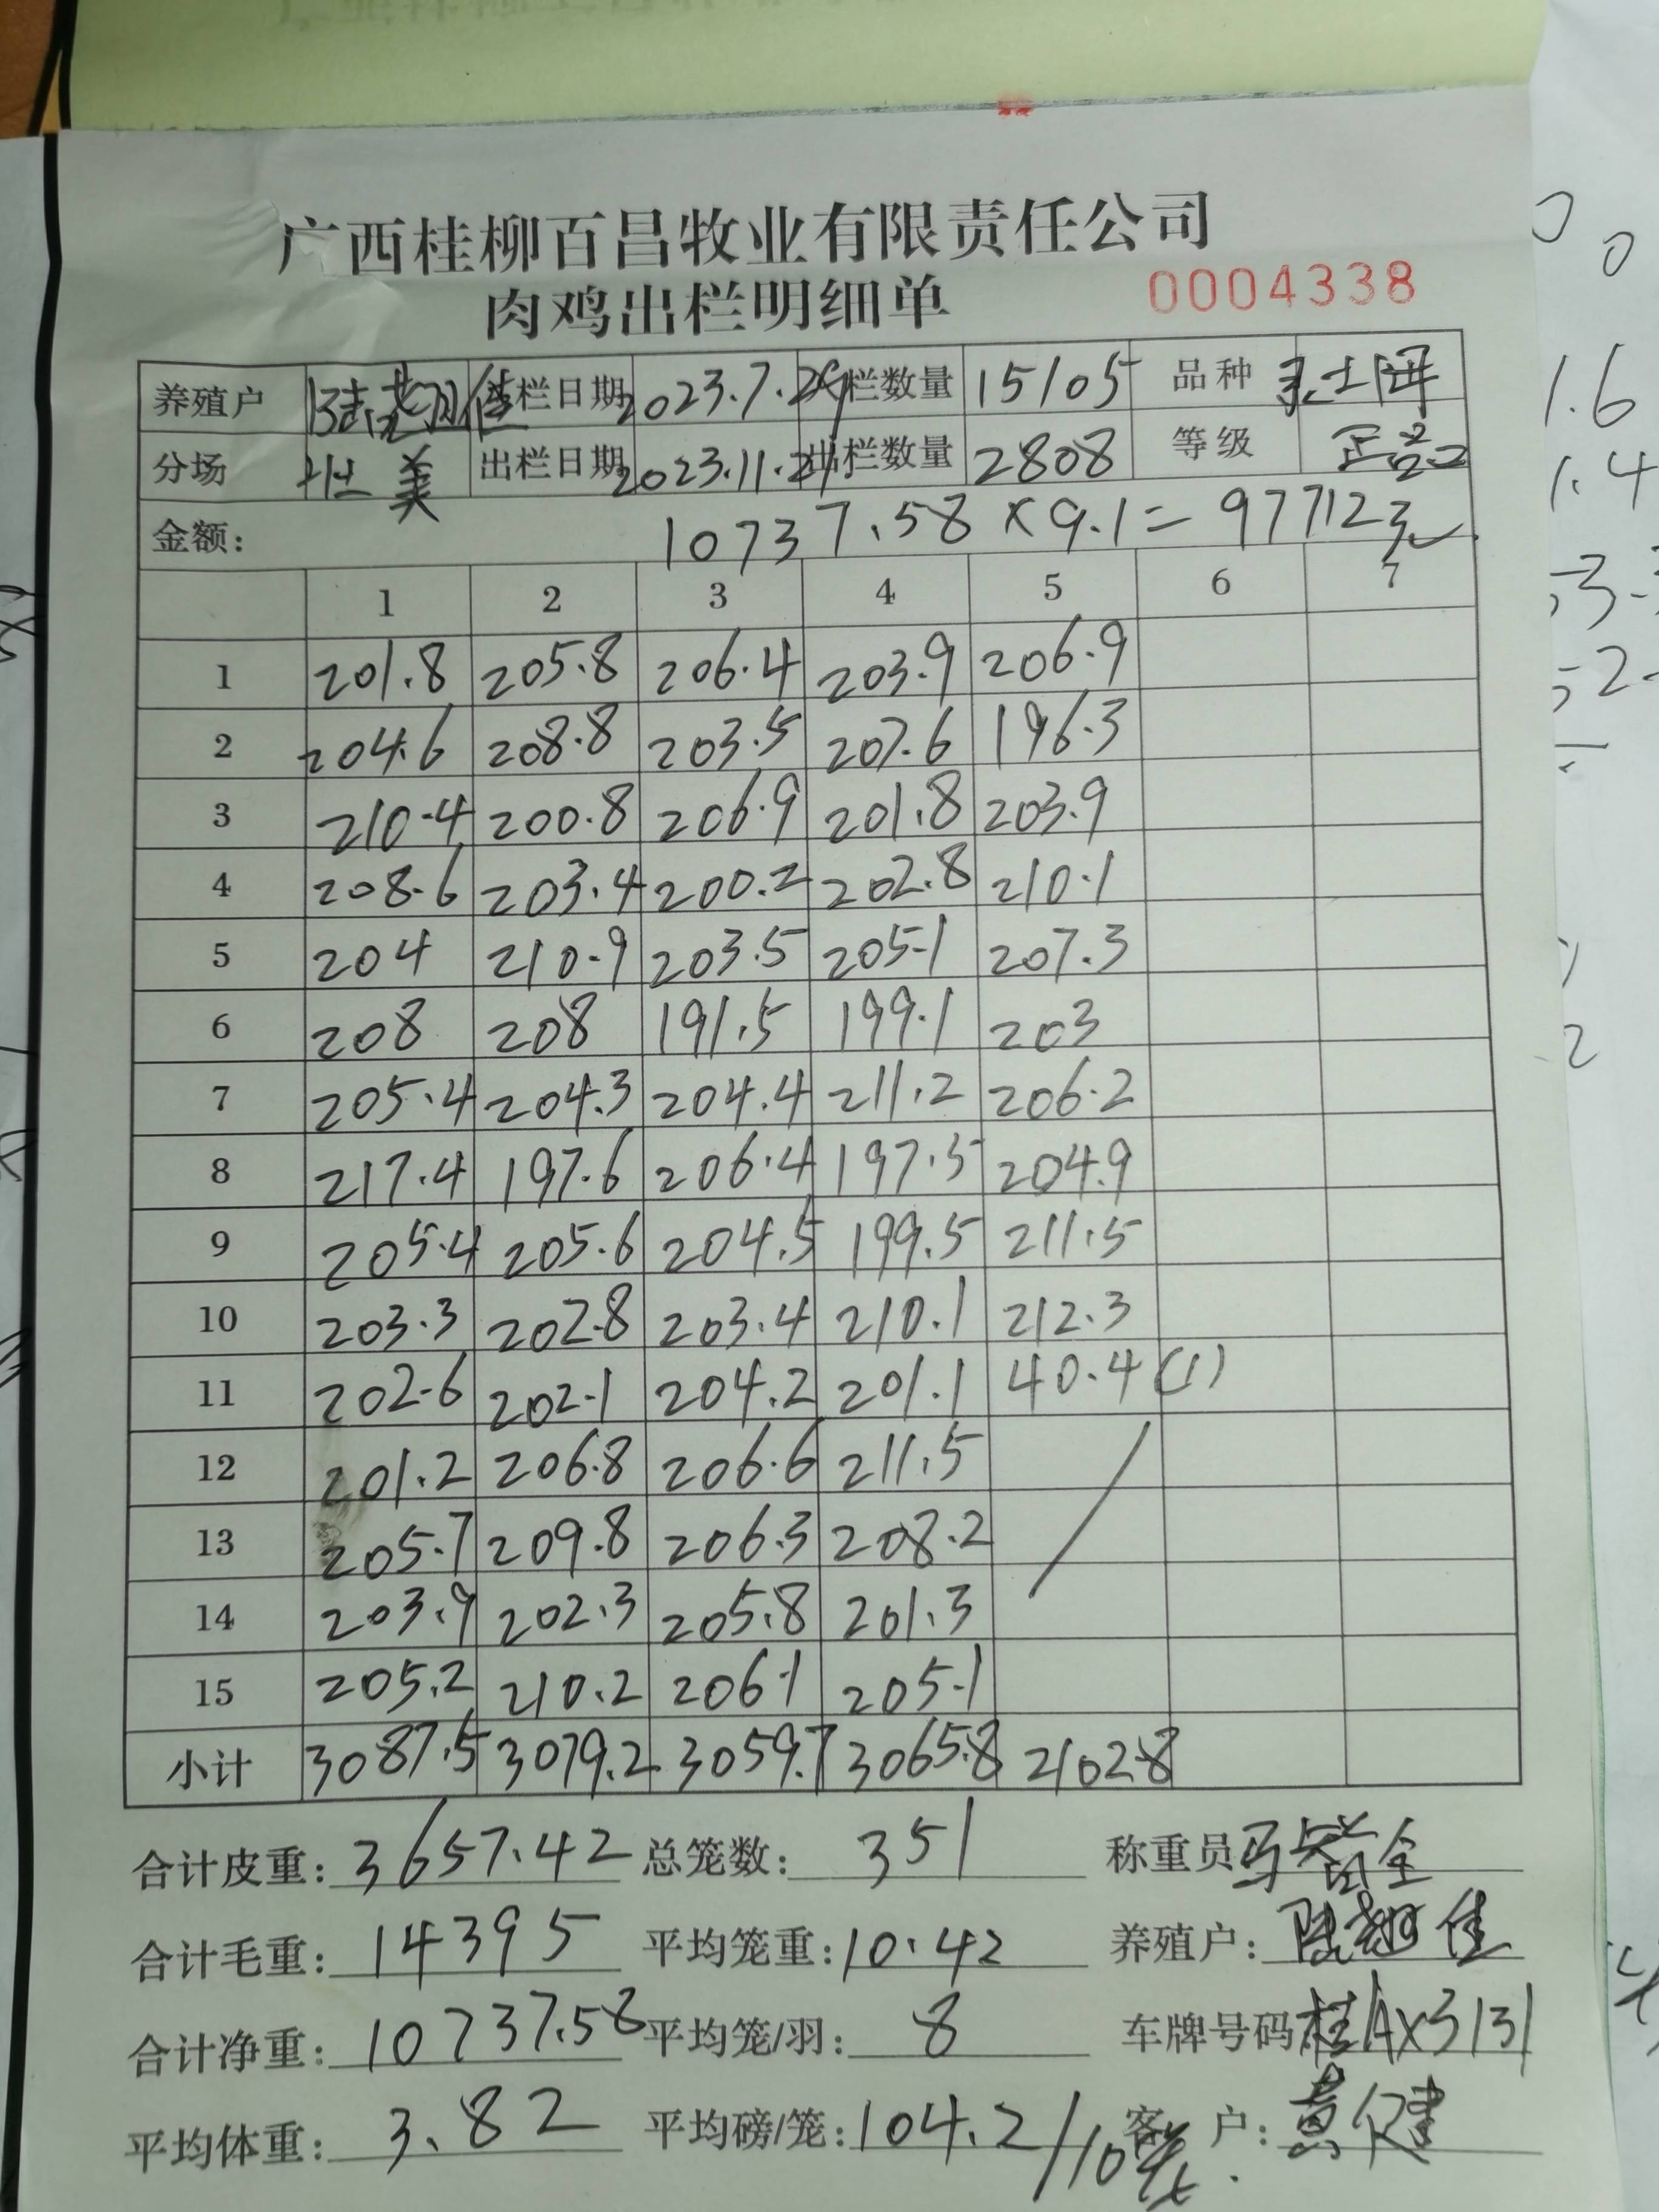 广西桂柳百昌牧业有限责任公司
肉鸡出栏明细单 0004338
养殖户 入栏日期 2023.7.29 入栏数量 15105 品种
分场 壮美 出栏日期 2023.11.21 出栏数量 2808 等级 正品
金额: 10737.58×9.1=977123
1 2 3 4 5 6 7
1 201.8 205.8 206.4 203.9 206.9
2 204.6 208.8 203.5 207.6 196.3
3 210.4 200.8 206.9 201.8 203.9
4 208.6 203.4 200.2 202.8 210.1
5 204 210.9 203.5 205.1 207.3
6 208 208 191.5 199.1 203
7 205.4 204.3 204.4 211.2 206.2
8 217.4 197.6 206.4 197.5 204.9
9 205.4 205.6 204.5 199.5 211.5
10 203.3 202.8 203.4 210.1 212.3
11 202.6 202.1 204.2 201.1 40.4(1)
12 201.2 206.8 206.6 211.5
13 205.7 209.8 206.3 208.2
14 203.9 202.3 205.8 201.3
15 205.2 210.2 206.1 205.1
小计 3087.5 3079.2 3059.7 3065.8 2102.8
合计皮重: 3657.42 总笼数: 351 称重员
合计毛重: 14395 平均笼重: 10.42 养殖户:
合计净重: 10737.58 平均笼/羽: 8 车牌号码 桂AX3131
平均体重: 3.82 平均磅/笼: 104.2/10笼. 客户: 黄健